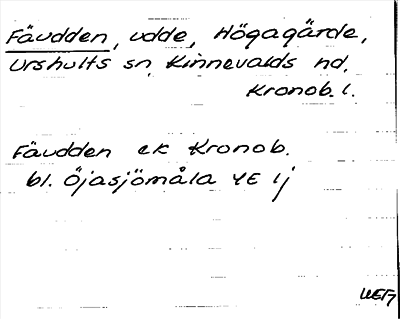 Fäudden, udde, Högagärde,
Urshults sn, Kinnevalds hd,
Kronob. l.
Fäudden ek Kronob.
bl. Öjasjömåla 4E 1j